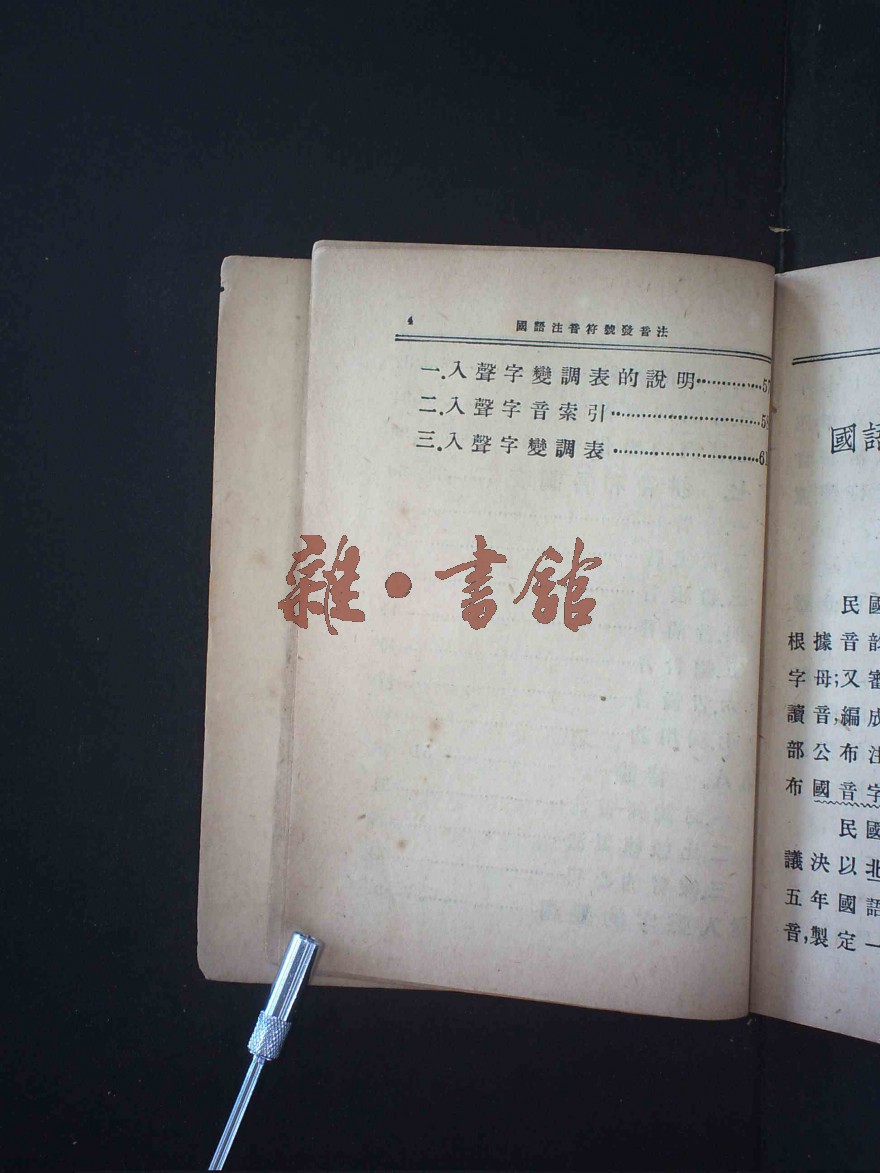 4
國語注音符號發音法
一.入聲字變調表的說明…………57
二.入聲字音索引…………………
三.入聲字變調表…………………
雜·書館
國語
民國
根據音韵
字母;又審
讀音,編成
部公布注
布國音字
民國
議決以北
五年國語
音,製定一